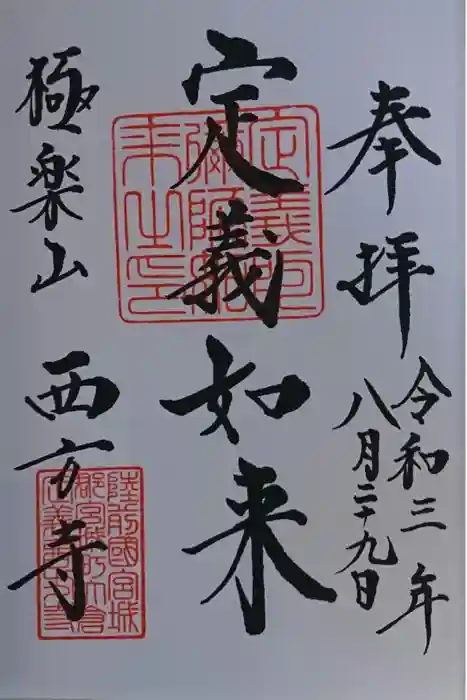 奉拝
令和三年
八月二十九日
定義如来
極楽山
西方寺